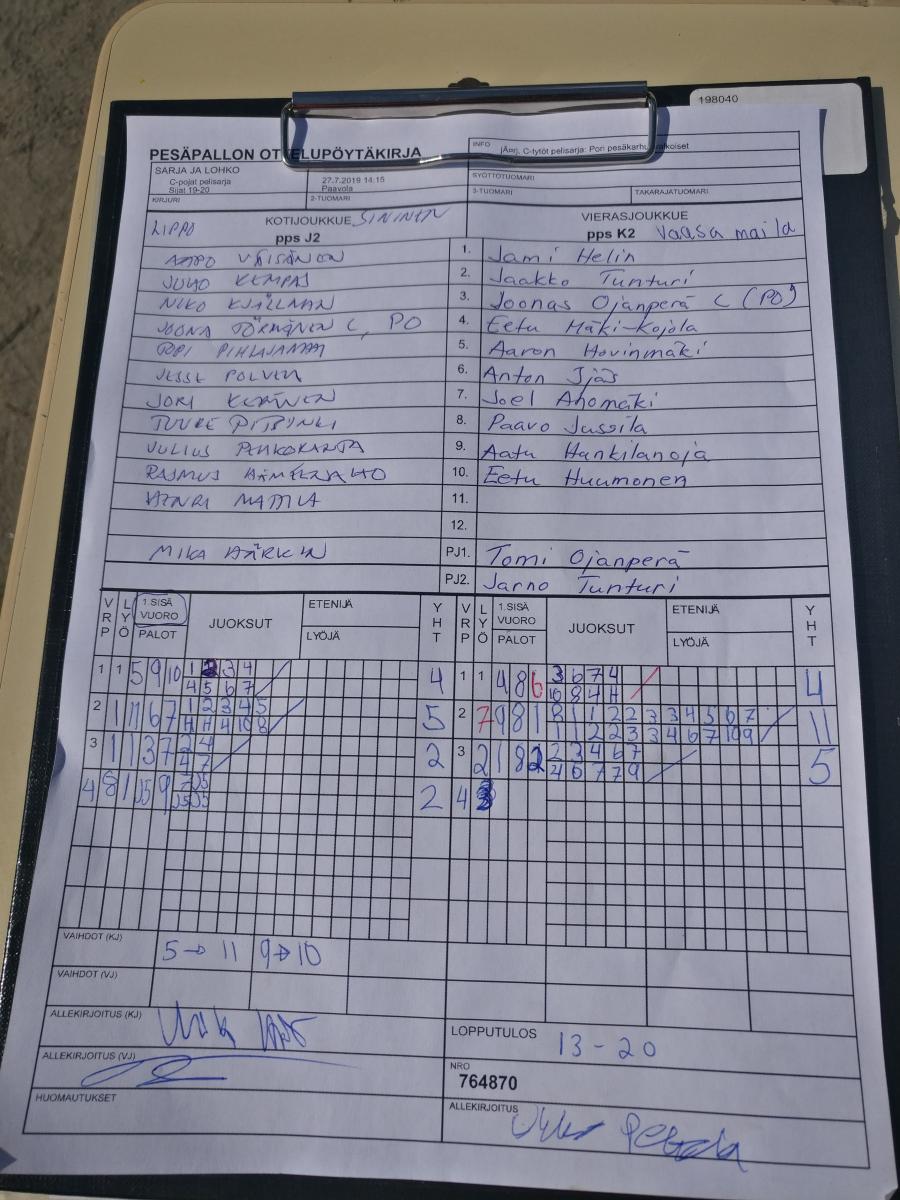 198040
PESÄPALLON OTTELUPÖYTÄKIRJA
INFO
C-tytöt pelisarja: Pori pesäkarhu
SARJA JA LOHKO
C-pojat pelisarja
Sijat 19-20
27.7.2019 14:15
Paavola
SYÖTTÖTUOMARI
KIRJURI
2-TUOMARI
3-TUOMARI
TAKARAJATUOMARI
LIPPO KOTIJOUKKUE SININEN
pps J2
VIERASJOUKKUE
pps K2 Vaasa maila
AAPO VÄISÄNEN 1. Jami Helin
JUHO KEMPAS 2. Jaakko Tunturi
NIKO KJÄLLMAN 3. Joonas Ojanperä C (PO)
JOONA TÖRMÄNEN C, PO 4. Eetu Mäki-Kojola
PIHLAJAMAA 5. Aaron Hovinmäki
JESSE POLVEN 6. Anton Ijäs
JONI KERÄNEN 7. Joel Ahomäki
TUURE 8. Paavo Jussila
JULIUS 9. Aatu Hankilanoja
RASMUS 10. Eetu Huumonen
HENRI MATTILA 11.
12.
MIKA HÄRKIN PJ1. Tomi Ojanperä
PJ2. Jarno Tunturi
VRP LYÖ 1.SISÄ VUORO PALOT JUOKSUT ETENIJÄ LYÖJÄ YHT VRP LYÖ 1.SISÄ VUORO PALOT JUOKSUT ETENIJÄ LYÖJÄ YHT
1 1 5 9 10 1 2 3 4 4 1 1 4 8 6 3 6 7 4 4
4 5 6 7 10 8 4 4
2 1 11 6 7 1 2 3 4 5 5 2 7 9 8 1 8 1 1 2 2 3 3 4 5 6 7 11
4 4 4 10 8 1 1 2 2 3 3 4 6 7 10 9
3 1 1 3 7 2 4 2 3 2 1 8 2 2 3 4 6 7 5
4 7 4 6 7 7 9
4 8 1 5 9 2 4
VAIHDOT (KJ) 5→11 9→10
VAIHDOT (VJ)
ALLEKIRJOITUS (KJ)
LOPPUTULOS 13-20
ALLEKIRJOITUS (VJ)
NRO
764870
HUOMAUTUKSET
ALLEKIRJOITUS